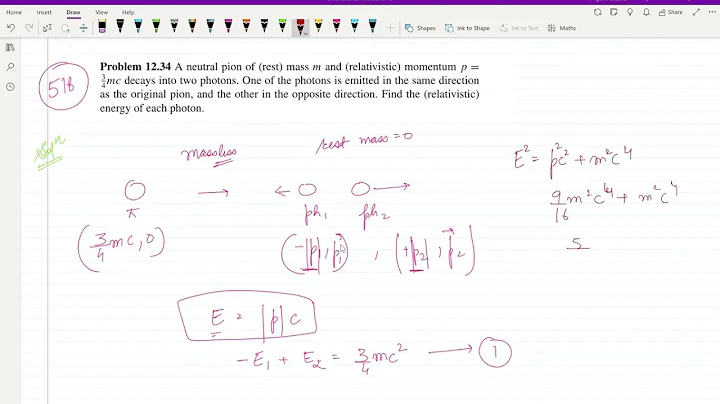 File Home Insert Draw View Help
Share
Shapes Ink to Shape Ink to Text Maths
Problem 12.34 A neutral pion of (rest) mass m and (relativistic) momentum p =
3/4 mc decays into two photons. One of the photons is emitted in the same direction
as the original pion, and the other in the opposite direction. Find the (relativistic)
energy of each photon.
518
Solⁿ
massless
rest mass = 0
π
ph₁ ph₂
(3/4 mc, 0)
(-|p₁|, p⃗₁) , (+|p₂|, p⃗₂)
E = |p| c
-E₁ + E₂ = 3/4 mc² ⟶ 1
E² = p²c² + m²c⁴
9/16 m²c⁴ + m²c⁴
5